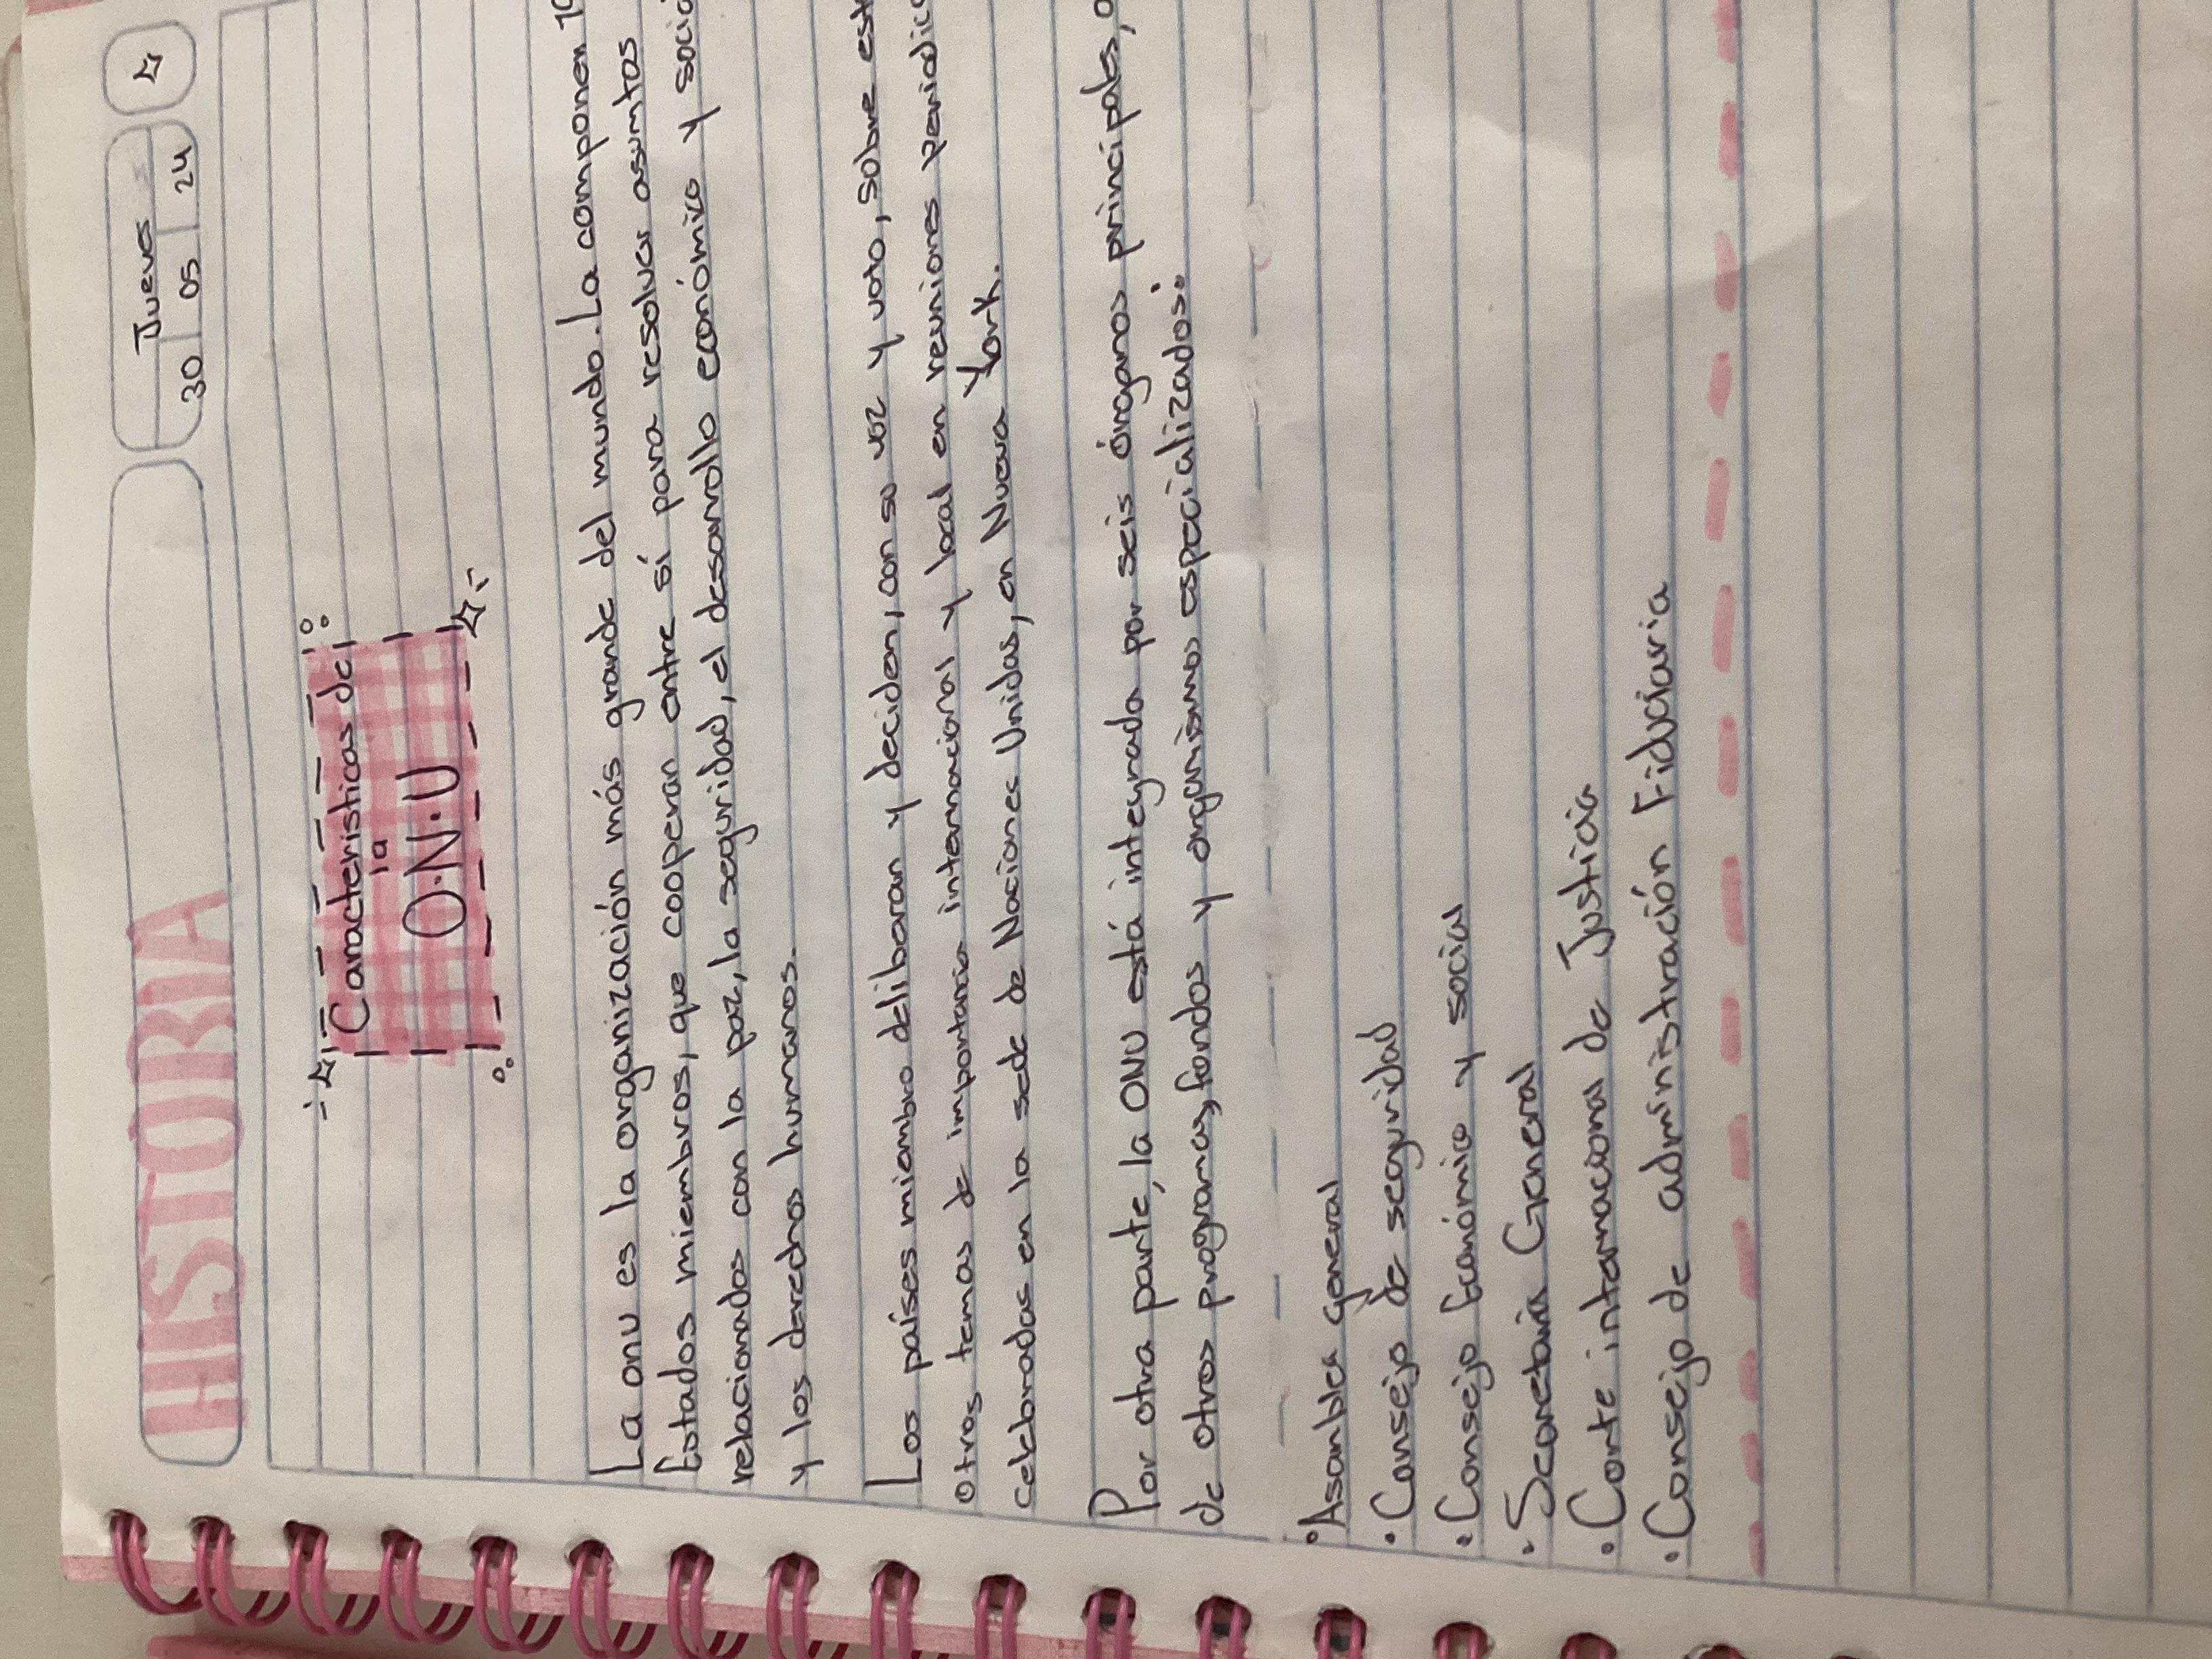 HISTORIA
Jueves
30 05 24
Caracteristicas de
la
O.N.U
La onu es la organización más grande del mundo. La componen
Estados miembros, que cooperan entre sí para resolver asuntos
relacionados con la paz, la seguridad, el desarrollo económico y
y los derechos humanos.
Los países miembro deliberan y deciden, con su voz y voto, sobre
otros temas de importancia internacional y local en reuniones
celebradas en la sede de Naciones Unidas, en Nueva York.
Por otra parte, la ONU está integrada por seis órganos principales,
de otros programas, fondos y organismos especializados:
• Asamblea general
• Consejo de seguridad
• Consejo Económico y social
• Secretaría General
• Corte internacional de Justicia
• Consejo de administración Fiduciaria